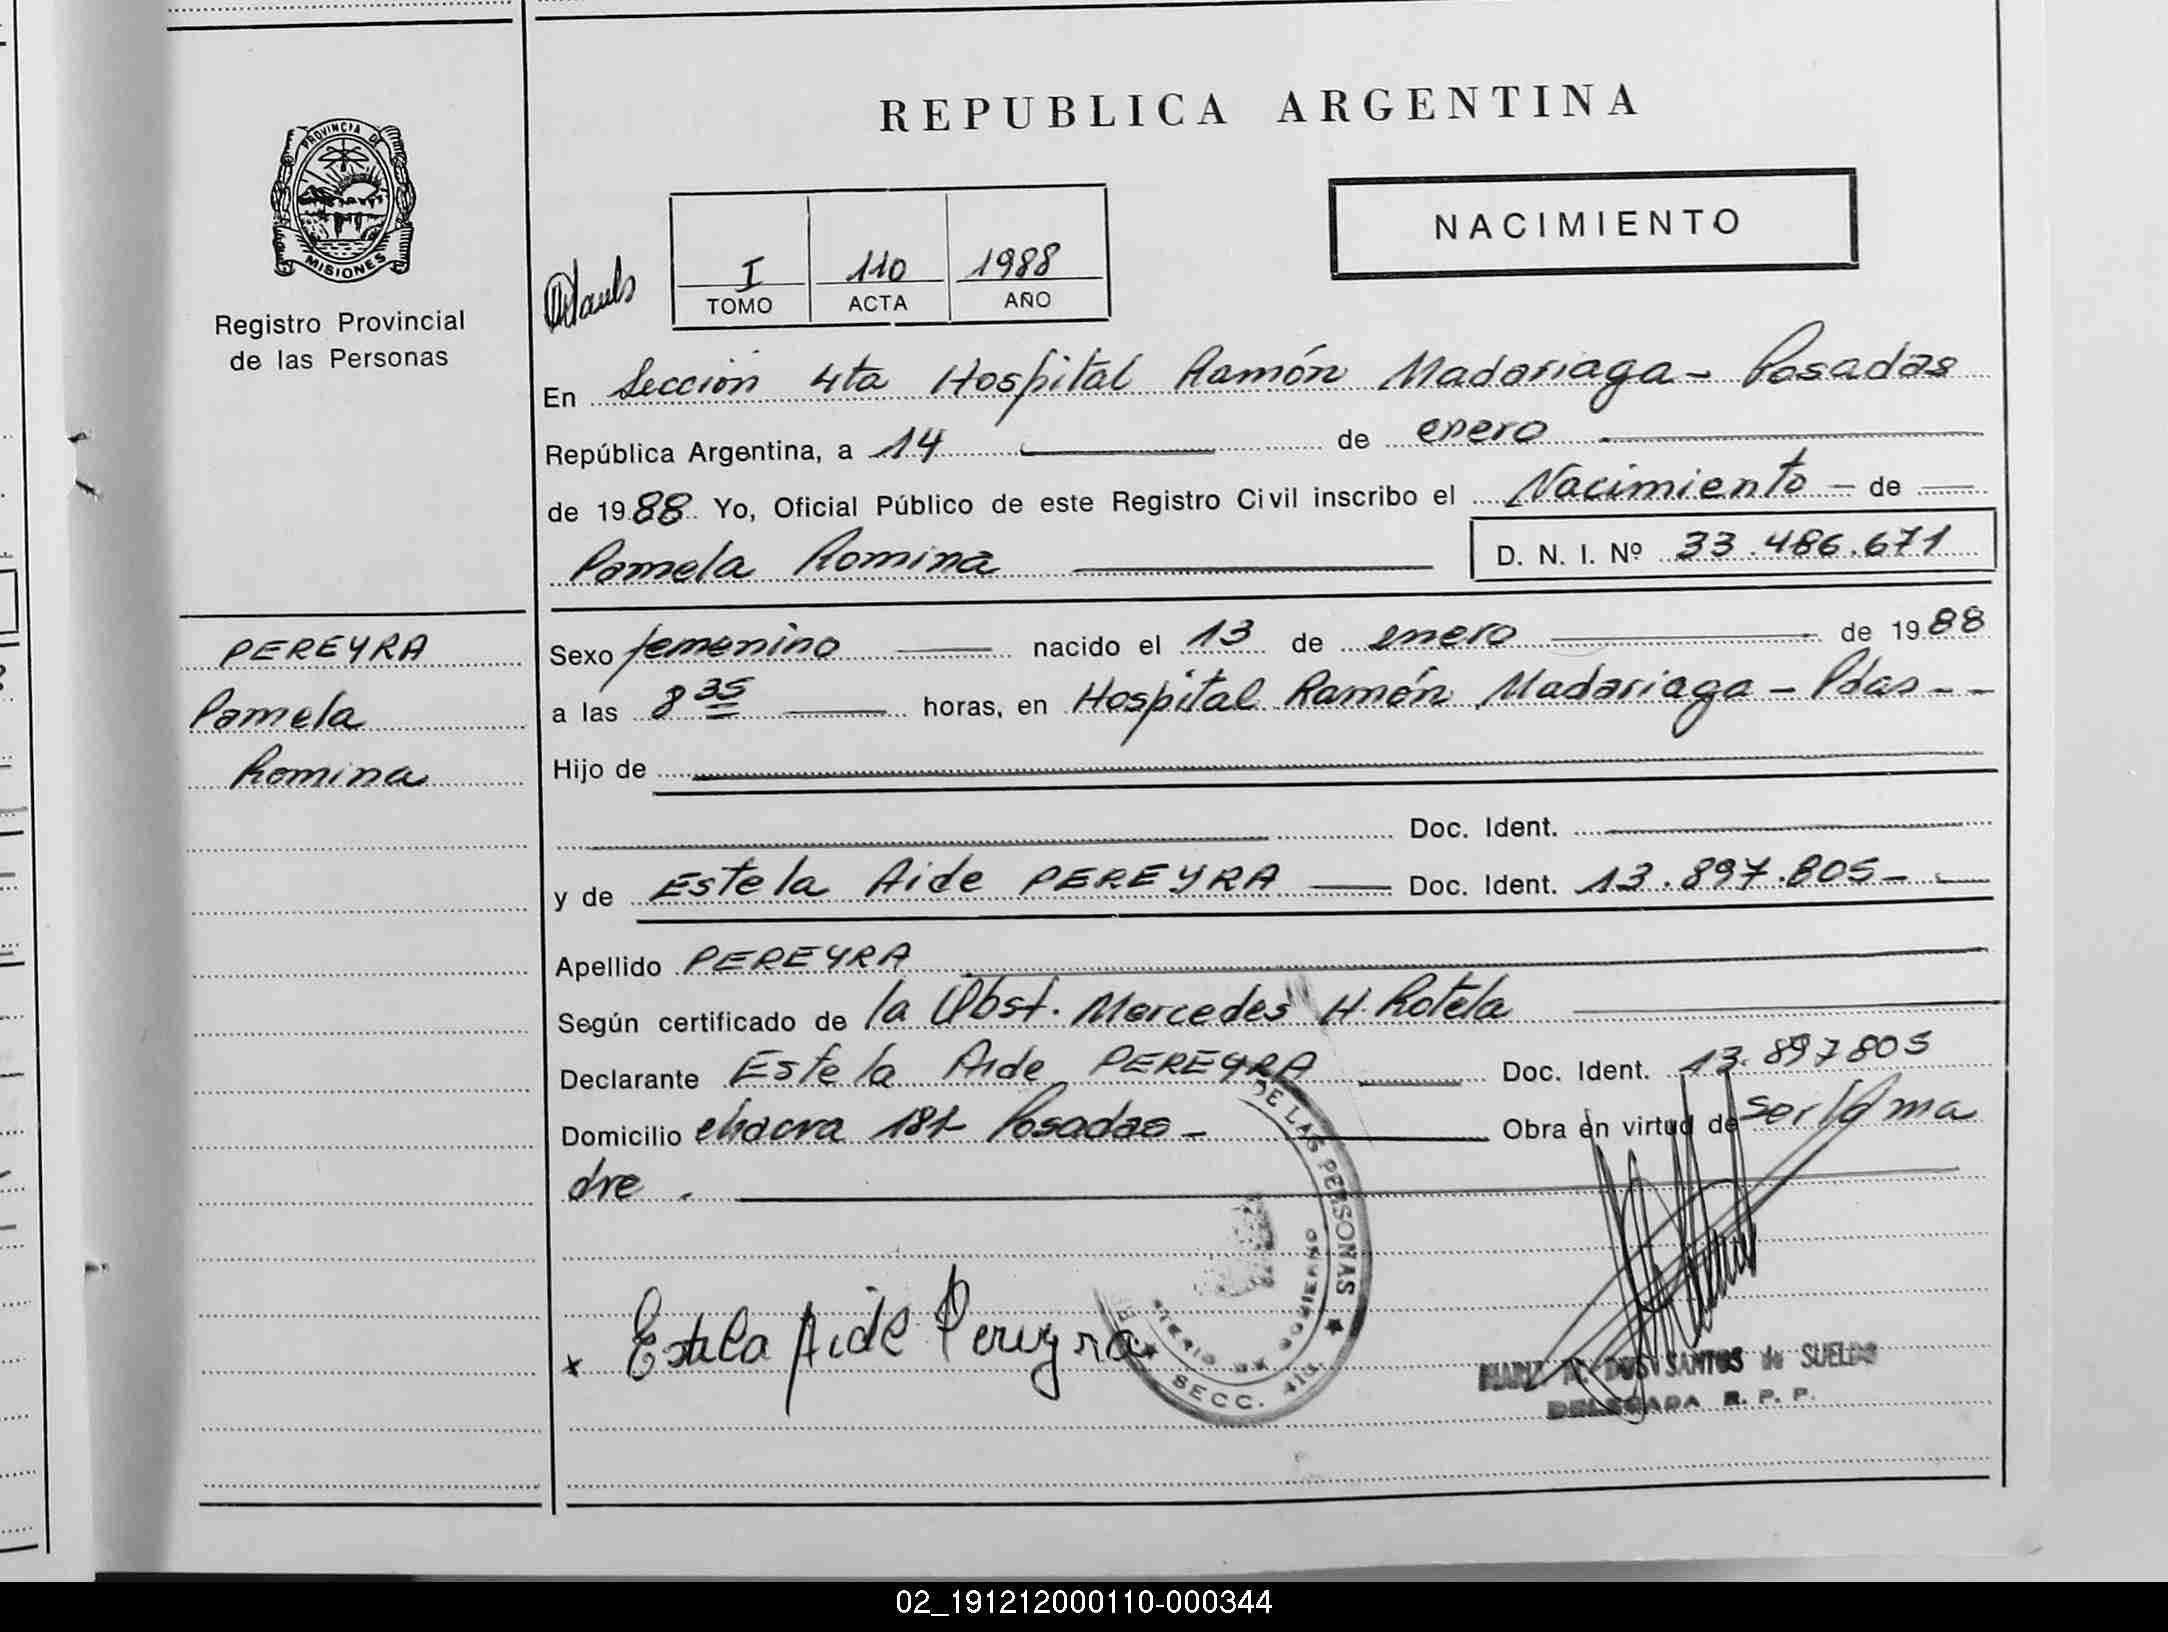 REPUBLICA ARGENTINA
PROVINCIA DE
MISIONES
Registro Provincial
de las Personas
NACIMIENTO
I 110 1988
TOMO ACTA AÑO
En Sección 4ta Hospital Ramón Madariaga - Posadas
República Argentina, a 14 de enero
de 1988 Yo, Oficial Público de este Registro Civil inscribo el Nacimiento - de
Pamela Romina D. N. I. Nº 33.486.671
PEREYRA
Pamela
Romina
Sexo femenino nacido el 13 de enero de 1988
a las 8 35 horas, en Hospital Ramón Madariaga - Pdas - -
Hijo de
Doc. Ident.
y de Estela Aide PEREYRA Doc. Ident. 13.897.805 -
Apellido PEREYRA
Según certificado de la Obst. Mercedes H. Rotela
Declarante Estela Aide PEREYRA Doc. Ident. 13.897805
Domicilio chacra 181 Posadas - Obra en virtud de ser la ma
dre .
x Estela Aide Pereyra
DE LAS PERSONAS
DE GOBIERNO
SECC. 4ta.
DOS SANTOS de SUELDO
DELEGADA R. P. P.
02_191212000110-000344